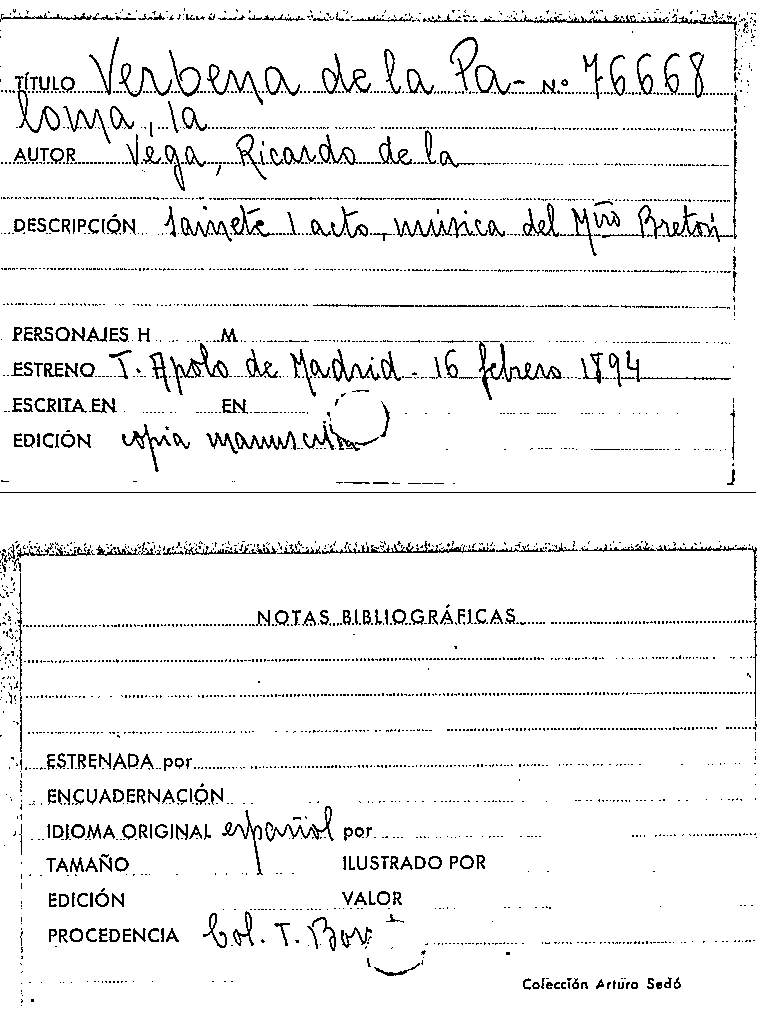 TÍTULO Verbena de la Pa- Nº 76668
loma, la
AUTOR Vega, Ricardo de la
DESCRIPCIÓN sainete 1 acto, música del Mtro Bretón
PERSONAJES H M
ESTRENO T. Apolo de Madrid - 16 febrero 1894
ESCRITA EN EN
EDICIÓN copia manuscrita
NOTAS BIBLIOGRÁFICAS
ESTRENADA por
ENCUADERNACIÓN
IDIOMA ORIGINAL español por
TAMAÑO ILUSTRADO POR
EDICIÓN VALOR
PROCEDENCIA Col. T.
Colección Arturo Sedó